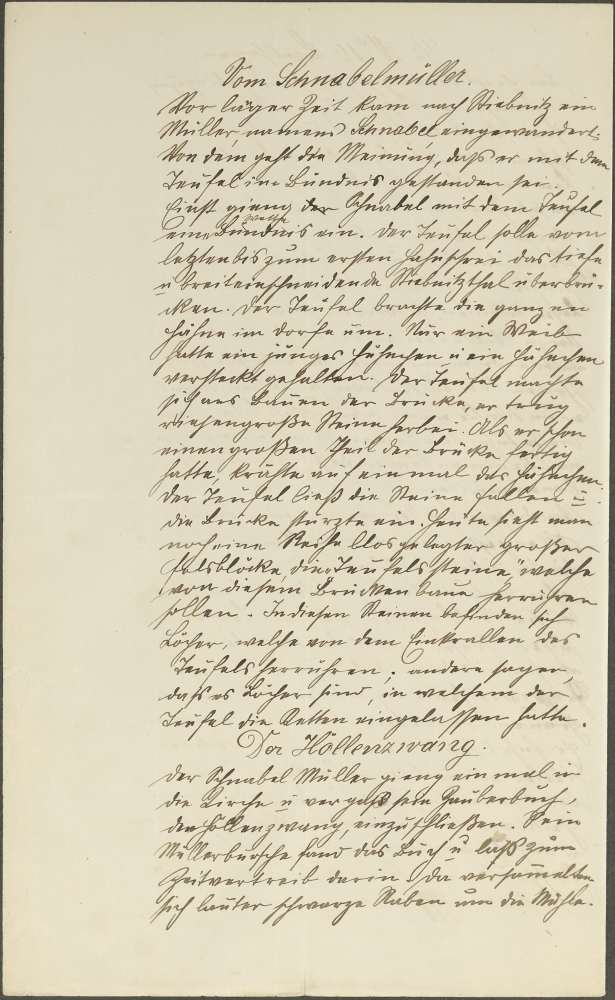 Vom Schnabelmüller.
Vor länger Zeit kam nach Stiebnitz ein
Müller, namens Schnabel eingewandert.
Von dem geht die Meinung, daß er mit dem
Teufel im Bündnis gestanden sei.
Einst gieng der Schnabel mit dem Teufel
eine Wette ein. Der Teufel solle vom
letzten bis zum ersten Hahnschrei das tiefe
u breit einschneidende Stiebnitzthal überbrü-
cken. Der Teufel brachte die ganzen
Hähne im Dorfe um. Nur ein Weib
hatte ein junges Hähnchen u ein Hühnchen
versteckt gehalten. Der Teufel machte
sich ans Bauen der Brücke, er trug
riesengroße Steine herbei. Als er schon
einen großen Theil der Brücke fertig
hatte, krähte auf einmal das Hähnchen.
Der Teufel ließ die Steine fallen u
die Brücke stürzte ein. Heute sieht man
noch eine Reihe blosgelegter großer
Felsblöcke, die "Teufelssteine", welche
von diesem Brückenbaue herrühren
sollen. In diesen Steinen befinden sich
Löcher, welche von dem Einkrallen des
Teufels herrühren; andere sagen,
daß es Löcher sind, in welchem der
Teufel die Ketten eingelassen hatte.
Der Höllenzwang.
Der Schnabel Müller gieng einmal in
die Kirche u vergaß sein Zauberbuch,
den Höllenzwang, einzuschließen. Sein
Müllerbursche fand das Buch u laß zum
Zeitvertreib darin. Da versammelten
sich lauter schwarze Raben um die Mühle.